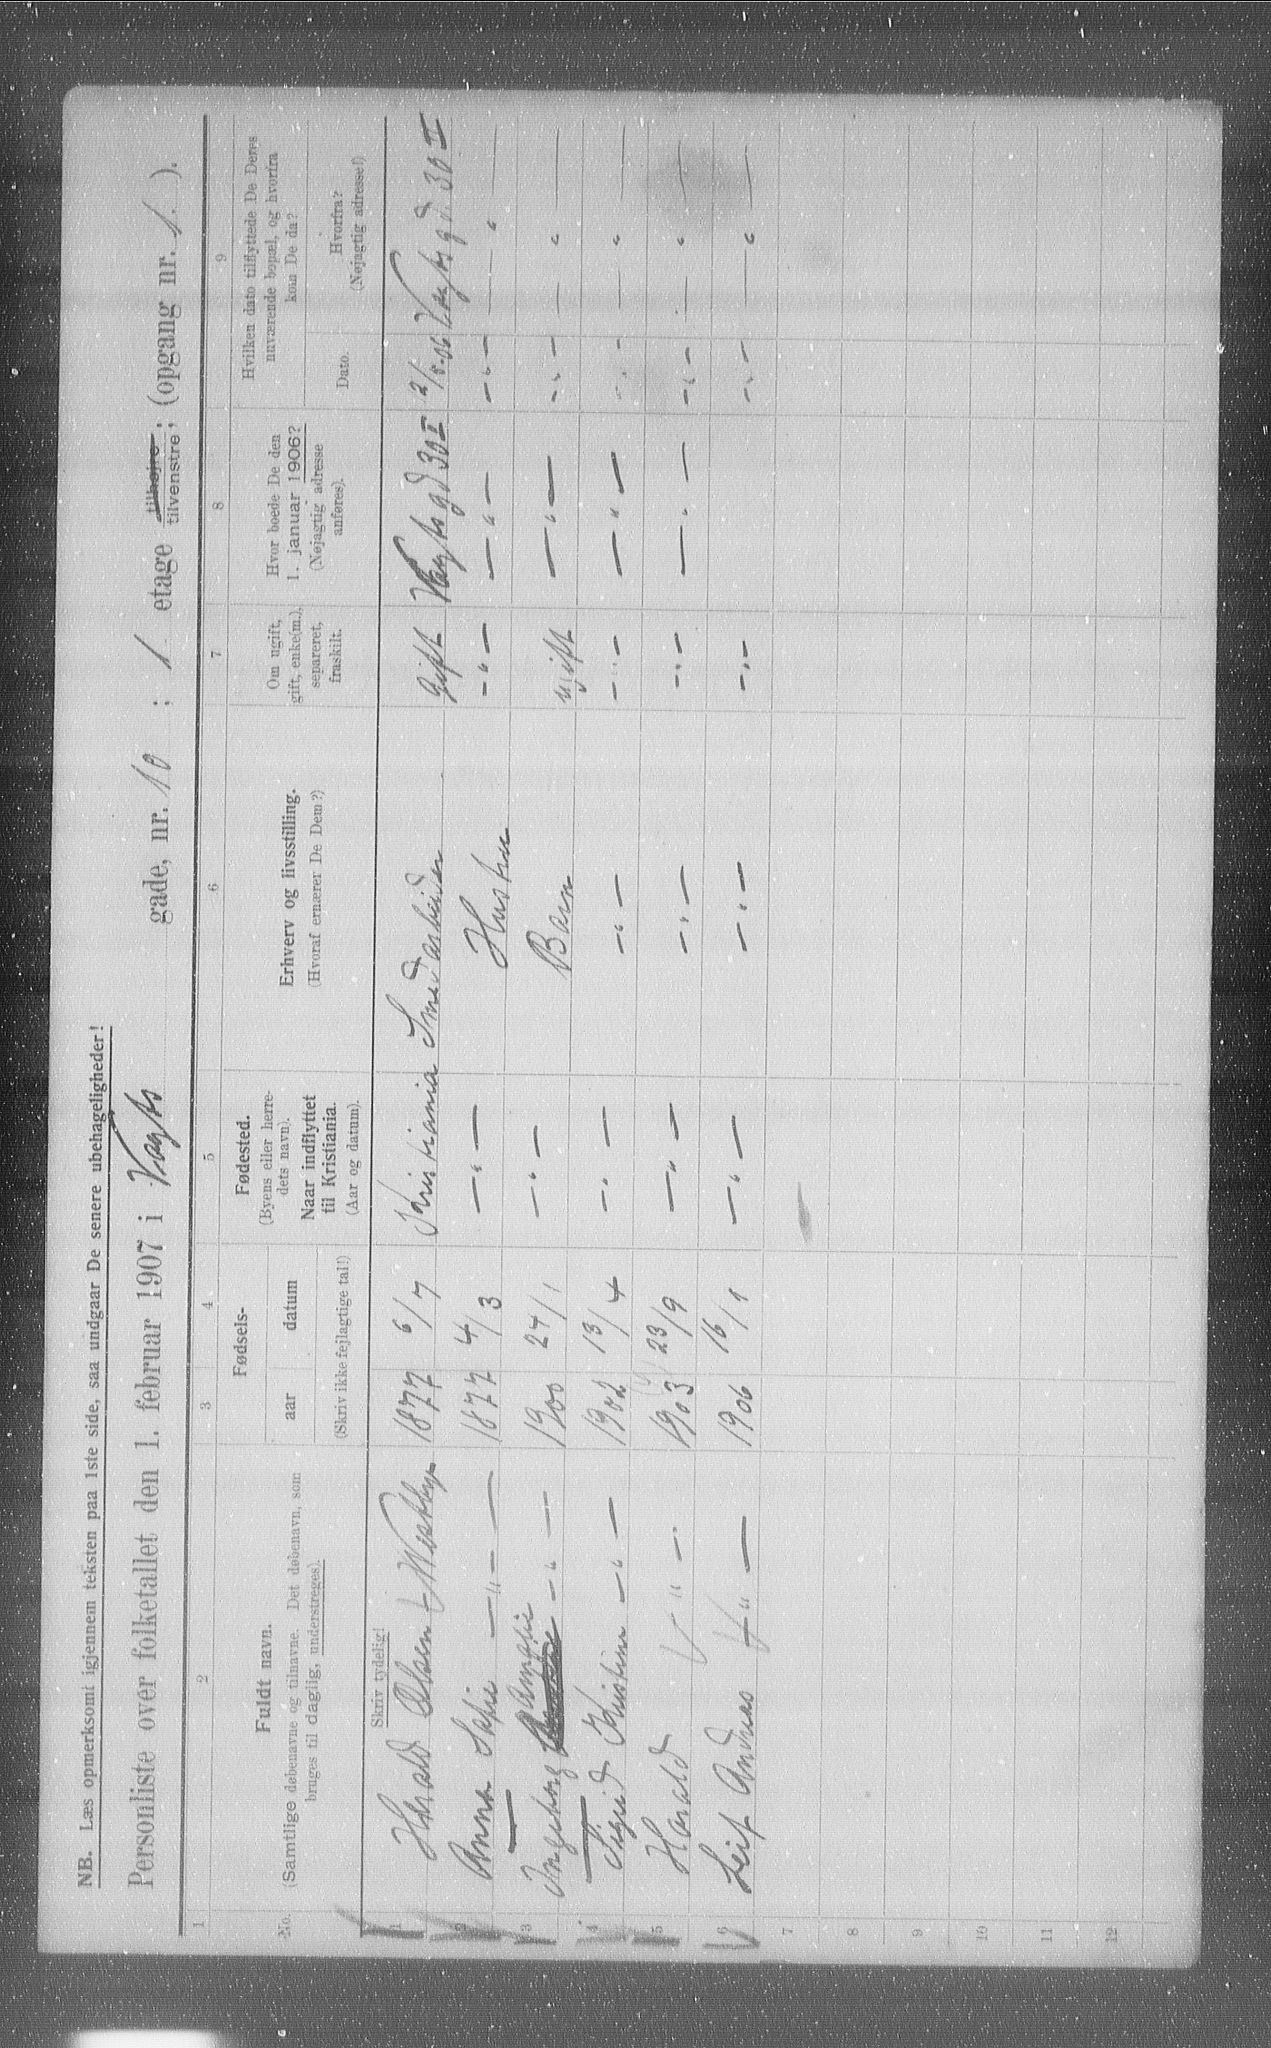 NB. Læs opmerksomt igjennem teksten paa 1ste side, saa undgaar De senere ubehageligheder!
Personliste over folketallet den 1. februar 1907 i Vagts gade, nr. 10 ; 1 etage tilhøjre tilvenstre; (opgang nr. 1. ).
1 2 3 4 5 6 7 8 9
No.
Fuldt navn.
(Samtlige døbenavne og tilnavne. Det døbenavn, som
bruges til daglig, understreges).
Fødsels-
aar datum
(Skriv ikke fejlagtige tal!)
Fødested.
(Byens eller herre-
dets navn).
Naar indflyttet
til Kristiania.
(Aar og datum).
Erhverv og livsstilling.
(Hvoraf ernærer De Dem?)
Om ugift,
gift, enke(m.),
separeret,
fraskilt.
Hvor boede De den
1. januar 1906?
(Nøjagtig adresse
anføres).
Hvilken dato tilflyttede De Deres
nuværende bopæl, og hvorfra
kom De da?
Dato.
Hvorfra?
(Nøjagtig adresse!)
Skriv tydelig!
1 Harald Olsen 1877 6/7 Kristiania Smedarbeider Gift Vagtsgd 30 I 2/5-06 Vagtsgd. 30 II
2 Anna Sofie — " — 1877 4/3 — " — Hustru — " — — " — — " — — " —
3 Ingeborg — " — 1900 24/1 — " — Barn ugift — " — — " — — " —
4 Sigrid Kristine — " — 1902 13/4 — " — — " — — " — — " — — " — — " —
5 Harald " — 1903 23/9 — " — — " — — " — — " — — " — — " —
6 Leif Andreas " — 1906 16/1 — " — — " — — " — — " — — " —
7
8
9
10
11
12